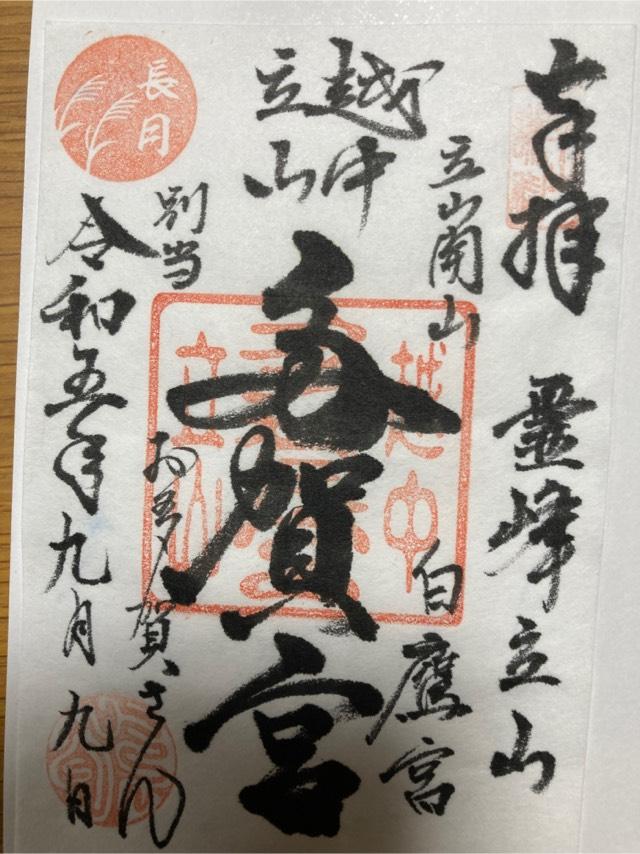 奉拝
霊峰立山
立山開山
白鷹宮
越中
立山
多賀宮
越中
立山
別当
お多賀さん
長月
令和五年九月九日